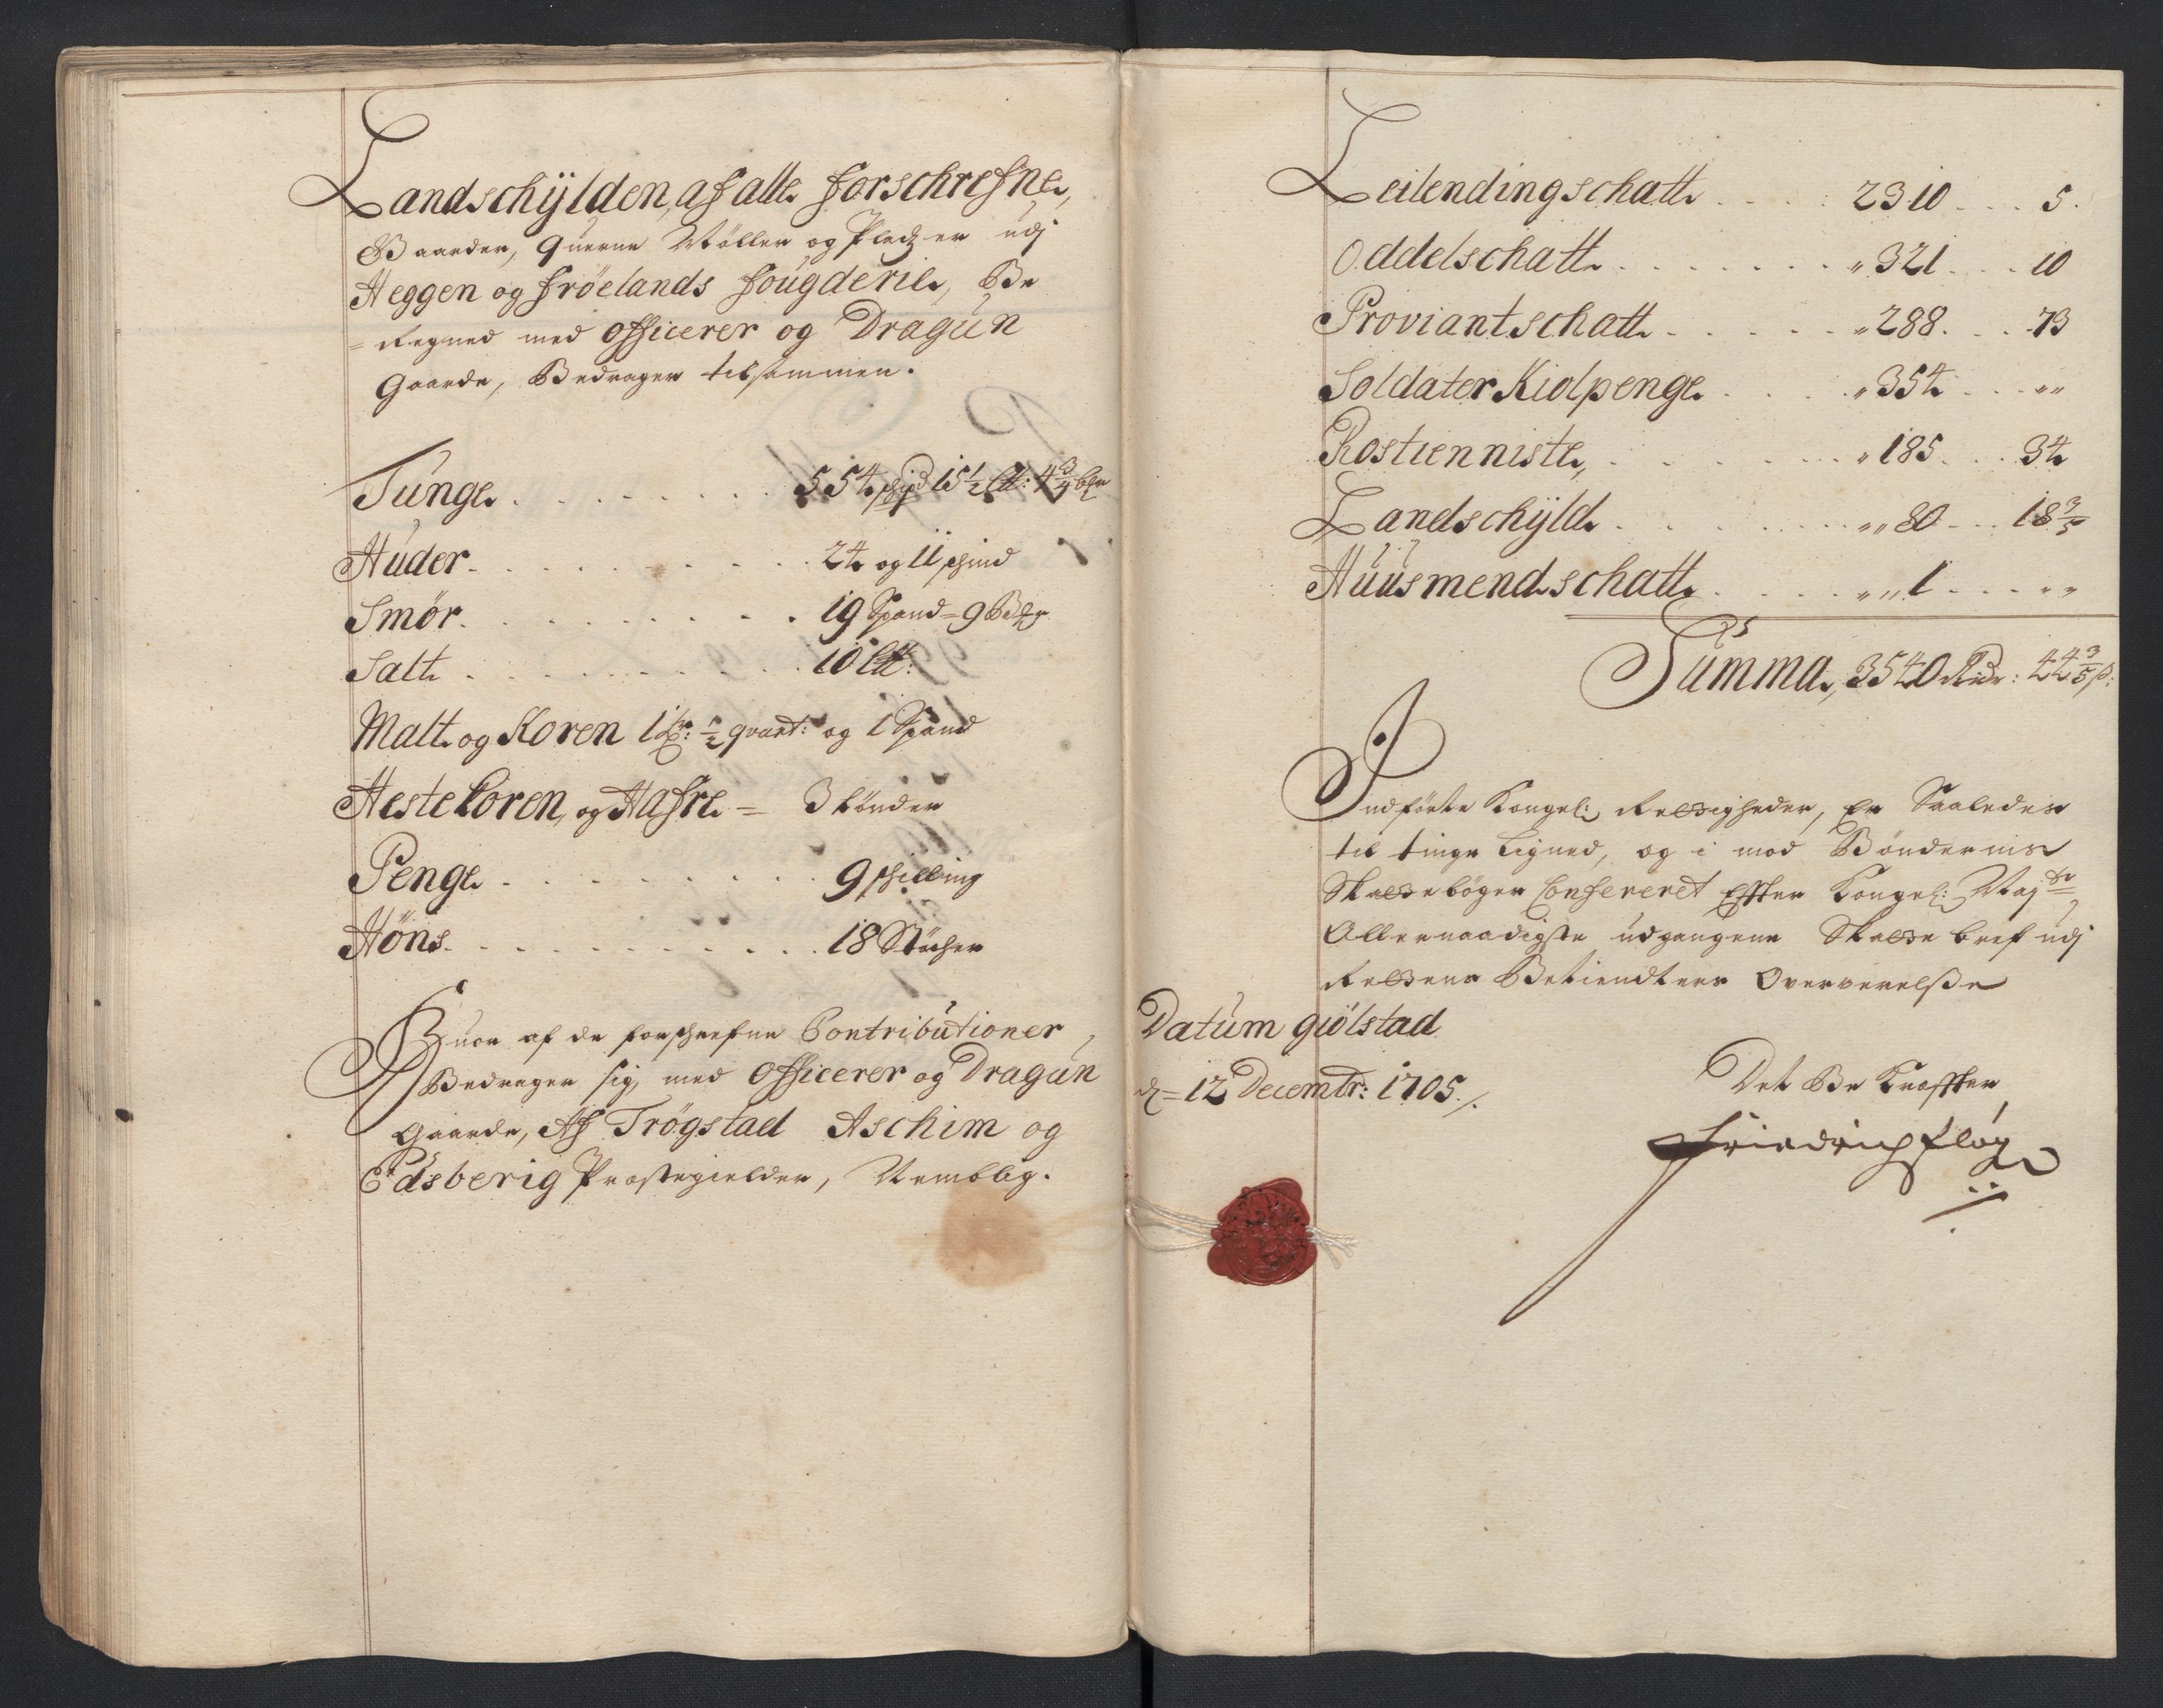 Landschÿlden, af alle forschrefne,
Gaarder, Querne Møller og Pledzer udj
Heggen og frøelands fougderie, Be
= regned med Officerer og Dragun
Gaarde, Bedrager tilsammen.
Tunge . . . . . . . . 554 schpd 15½ lt: 4¾ bsr
Huder . . . . . . . . 24 og 11 schind
Smør . . . . . . . . 19 Spand = 9 Bdr
Salt . . . . . . . . 10 lt:
Malt og Koren 1 tr: ½ quart: og 1 Spand
Hestekoren, og Hafre = 3 tönder
Penge . . . . . . . . 9 schilling
Höns . . . . . . . . 18 Stücher
Huor af de forschrefne Contributioner,
Bedrager sig, med Officerer og Dragun
Gaarde, Af Trögstad Aschim og
Edsberig Præstegielder, Nemblig.
Leilendingschatt . . . . 2310 . . . 5.
Oddelschatt . . . . . . . " 321 . . . 10
Proviantschatt . . . . . " 288 . . . 73
Soldater Kiolpenge . . . . " 354 . . . ""
Rostienniste, . . . . . . " 185 . . . 34
Landschÿld . . . . . . "" 80 . . . 18 3/5
Huusmendschatt . . . . ""1 . . . ""
Summa, 3540 Rdr: 44 3/5 ß:
Indförte Kongel: Rettigheder, Er Saaledes
til tinge Ligned, og i mod Böndernis
Skatteböger Confereret Effter Kongel: Maj:ts
Allernaadigste udgangene Skatte bref udj
Rettens Betiendters Oververelße
Datum giölstad
d = 12 Decembr: 1705 ./.
Det Be Kræffter
Friedrich fløg